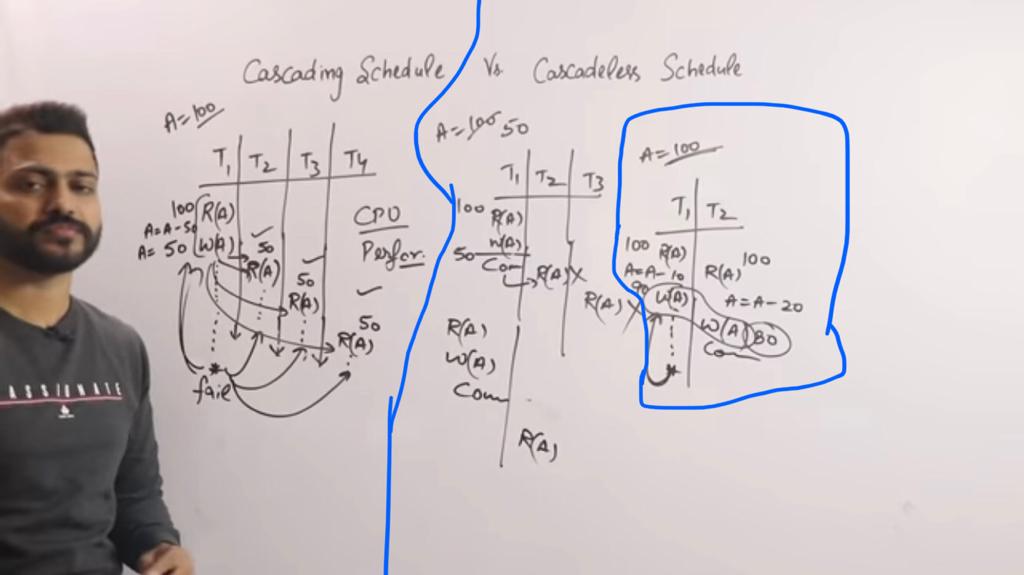 Cascading Schedule Vs. Cascadeless Schedule
A=100
T1 T2 T3 T4
100 R(A)
A=A-50
A=50 W(A)
50
R(A)
50
R(A)
50
R(A)
fail
CPU
Perfor.
A=100 50
T1 T2 T3
100 R(A)
W(A)
50 Com
R(A) X
R(A)
W(A)
Com
R(A)
A=100
T1 T2
100 R(A)
R(A) 100
A=A-10
90 W(A)
A=A-20
R(A) X
W(A) 80
Com
ASSIONATE